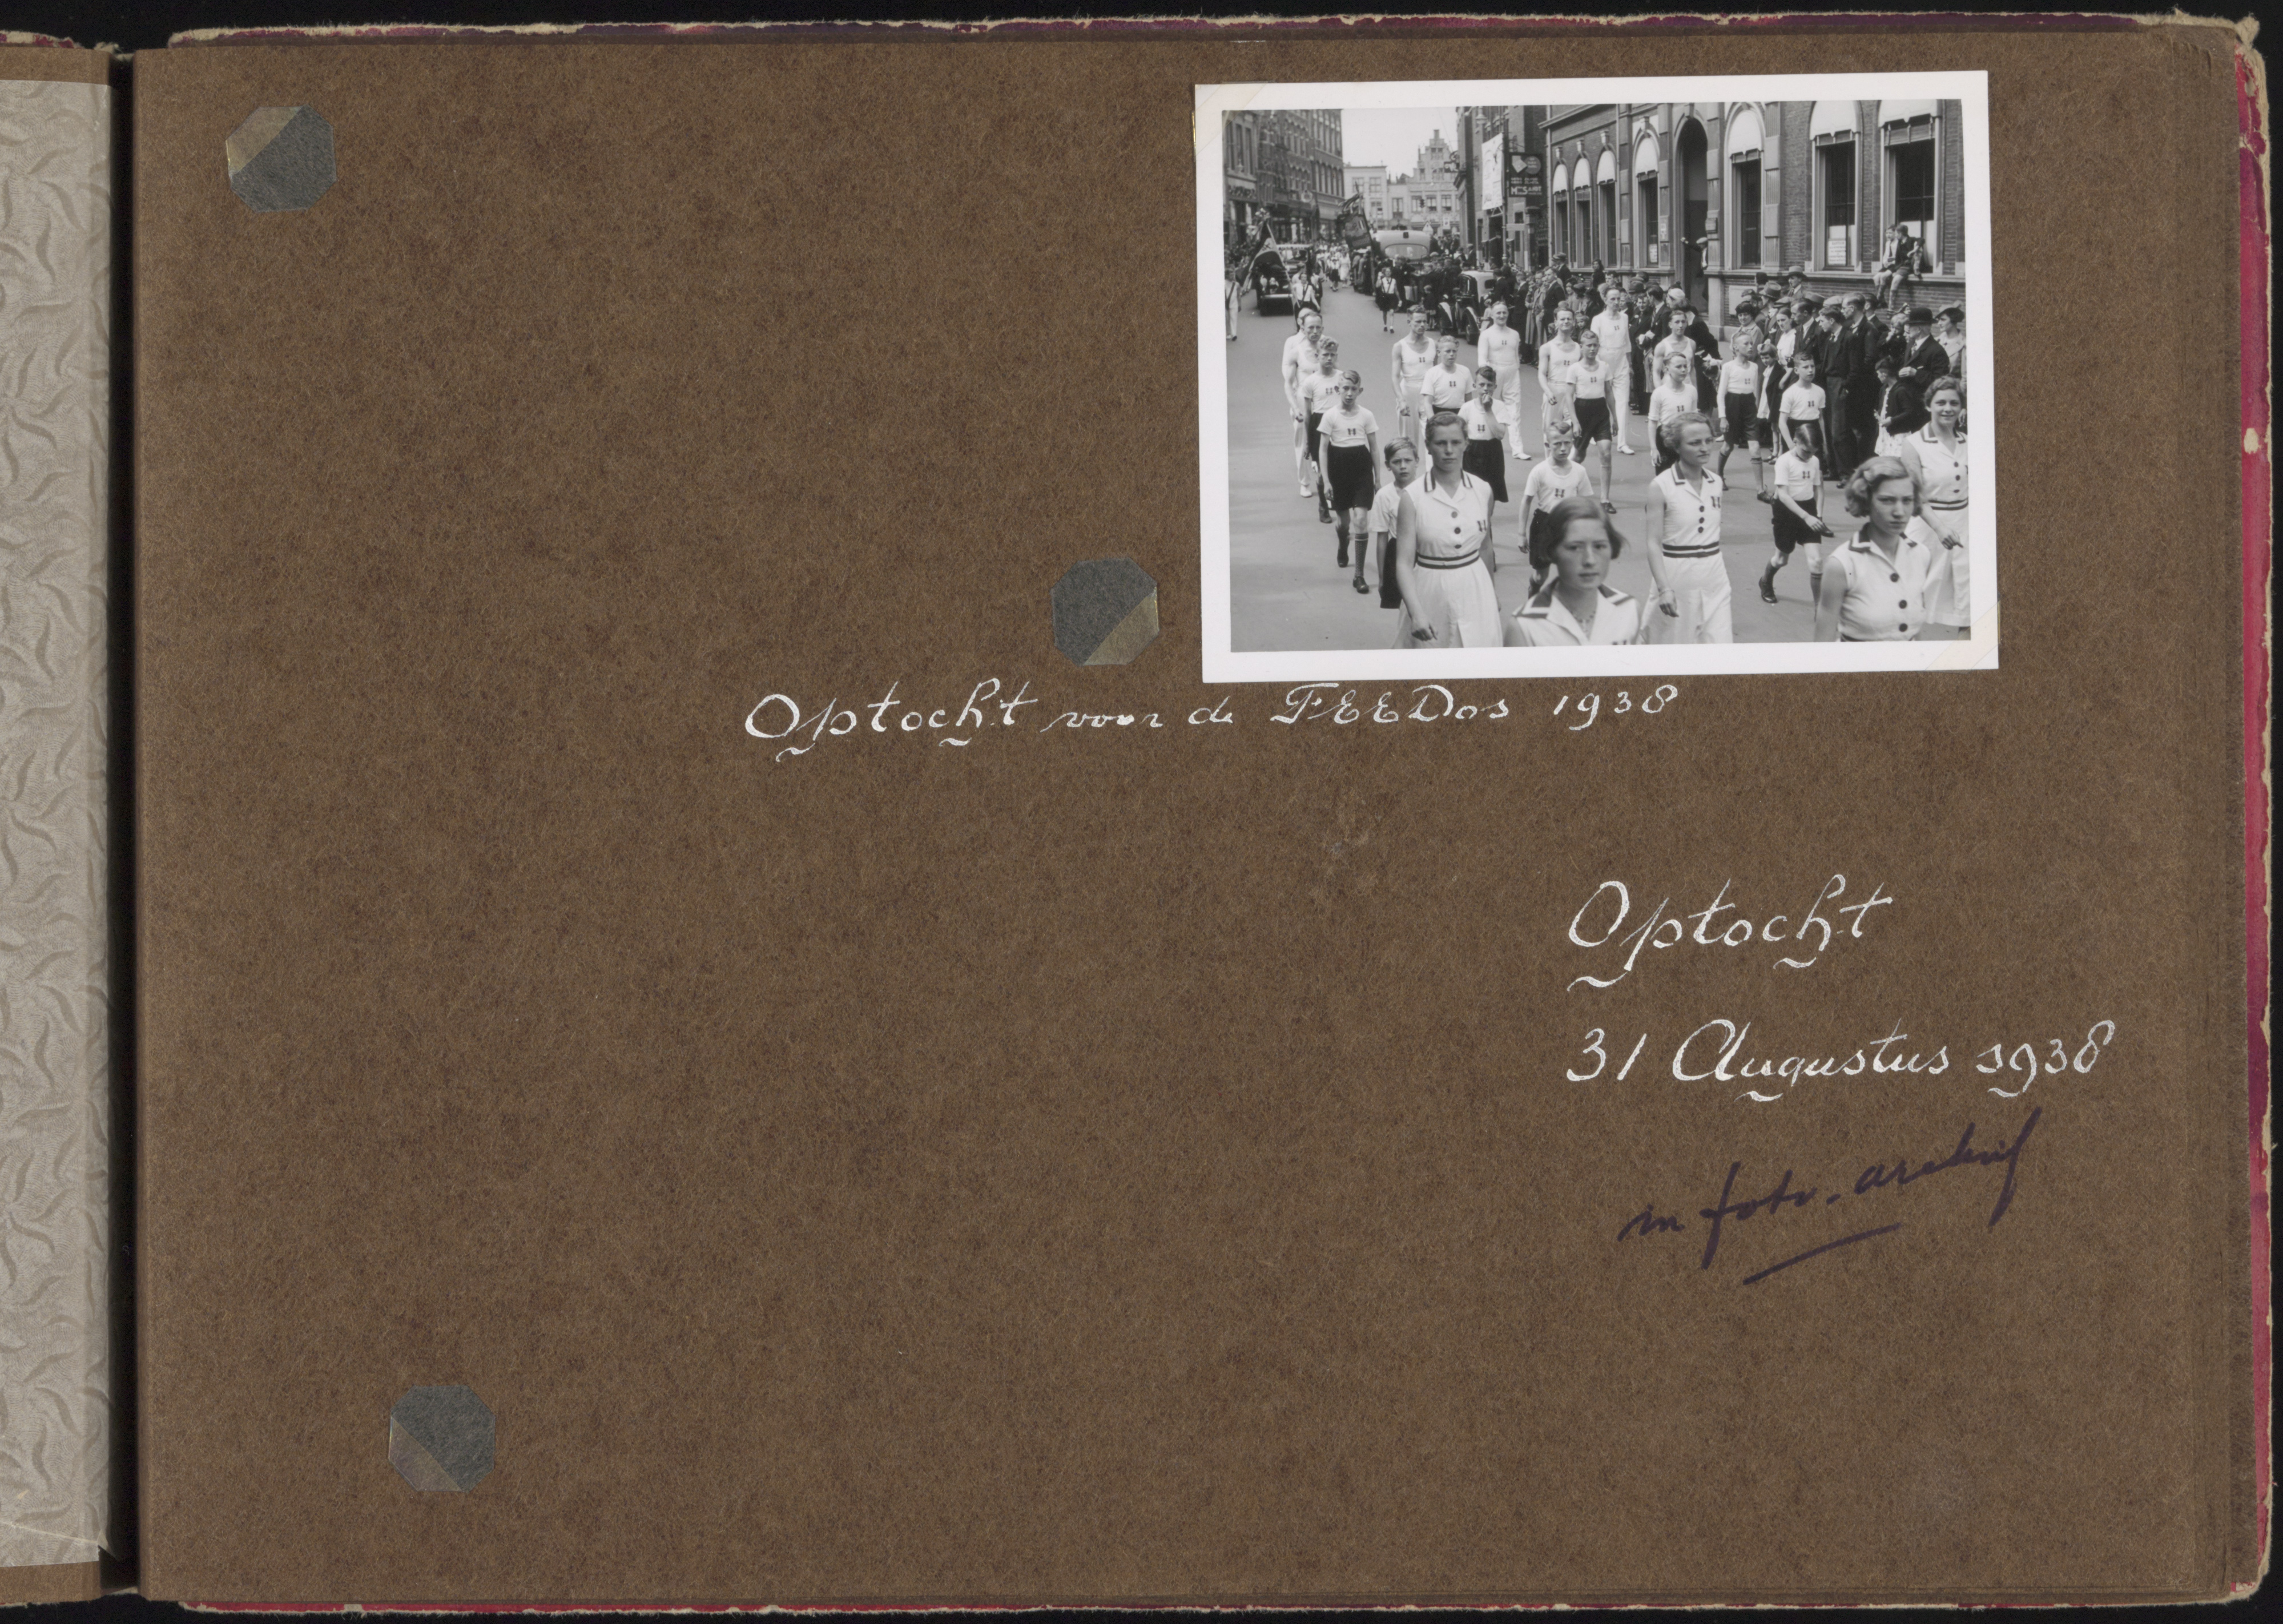 Optocht voor de FEEDos 1938
Optocht
31 Augustus 1938
in foto-archief